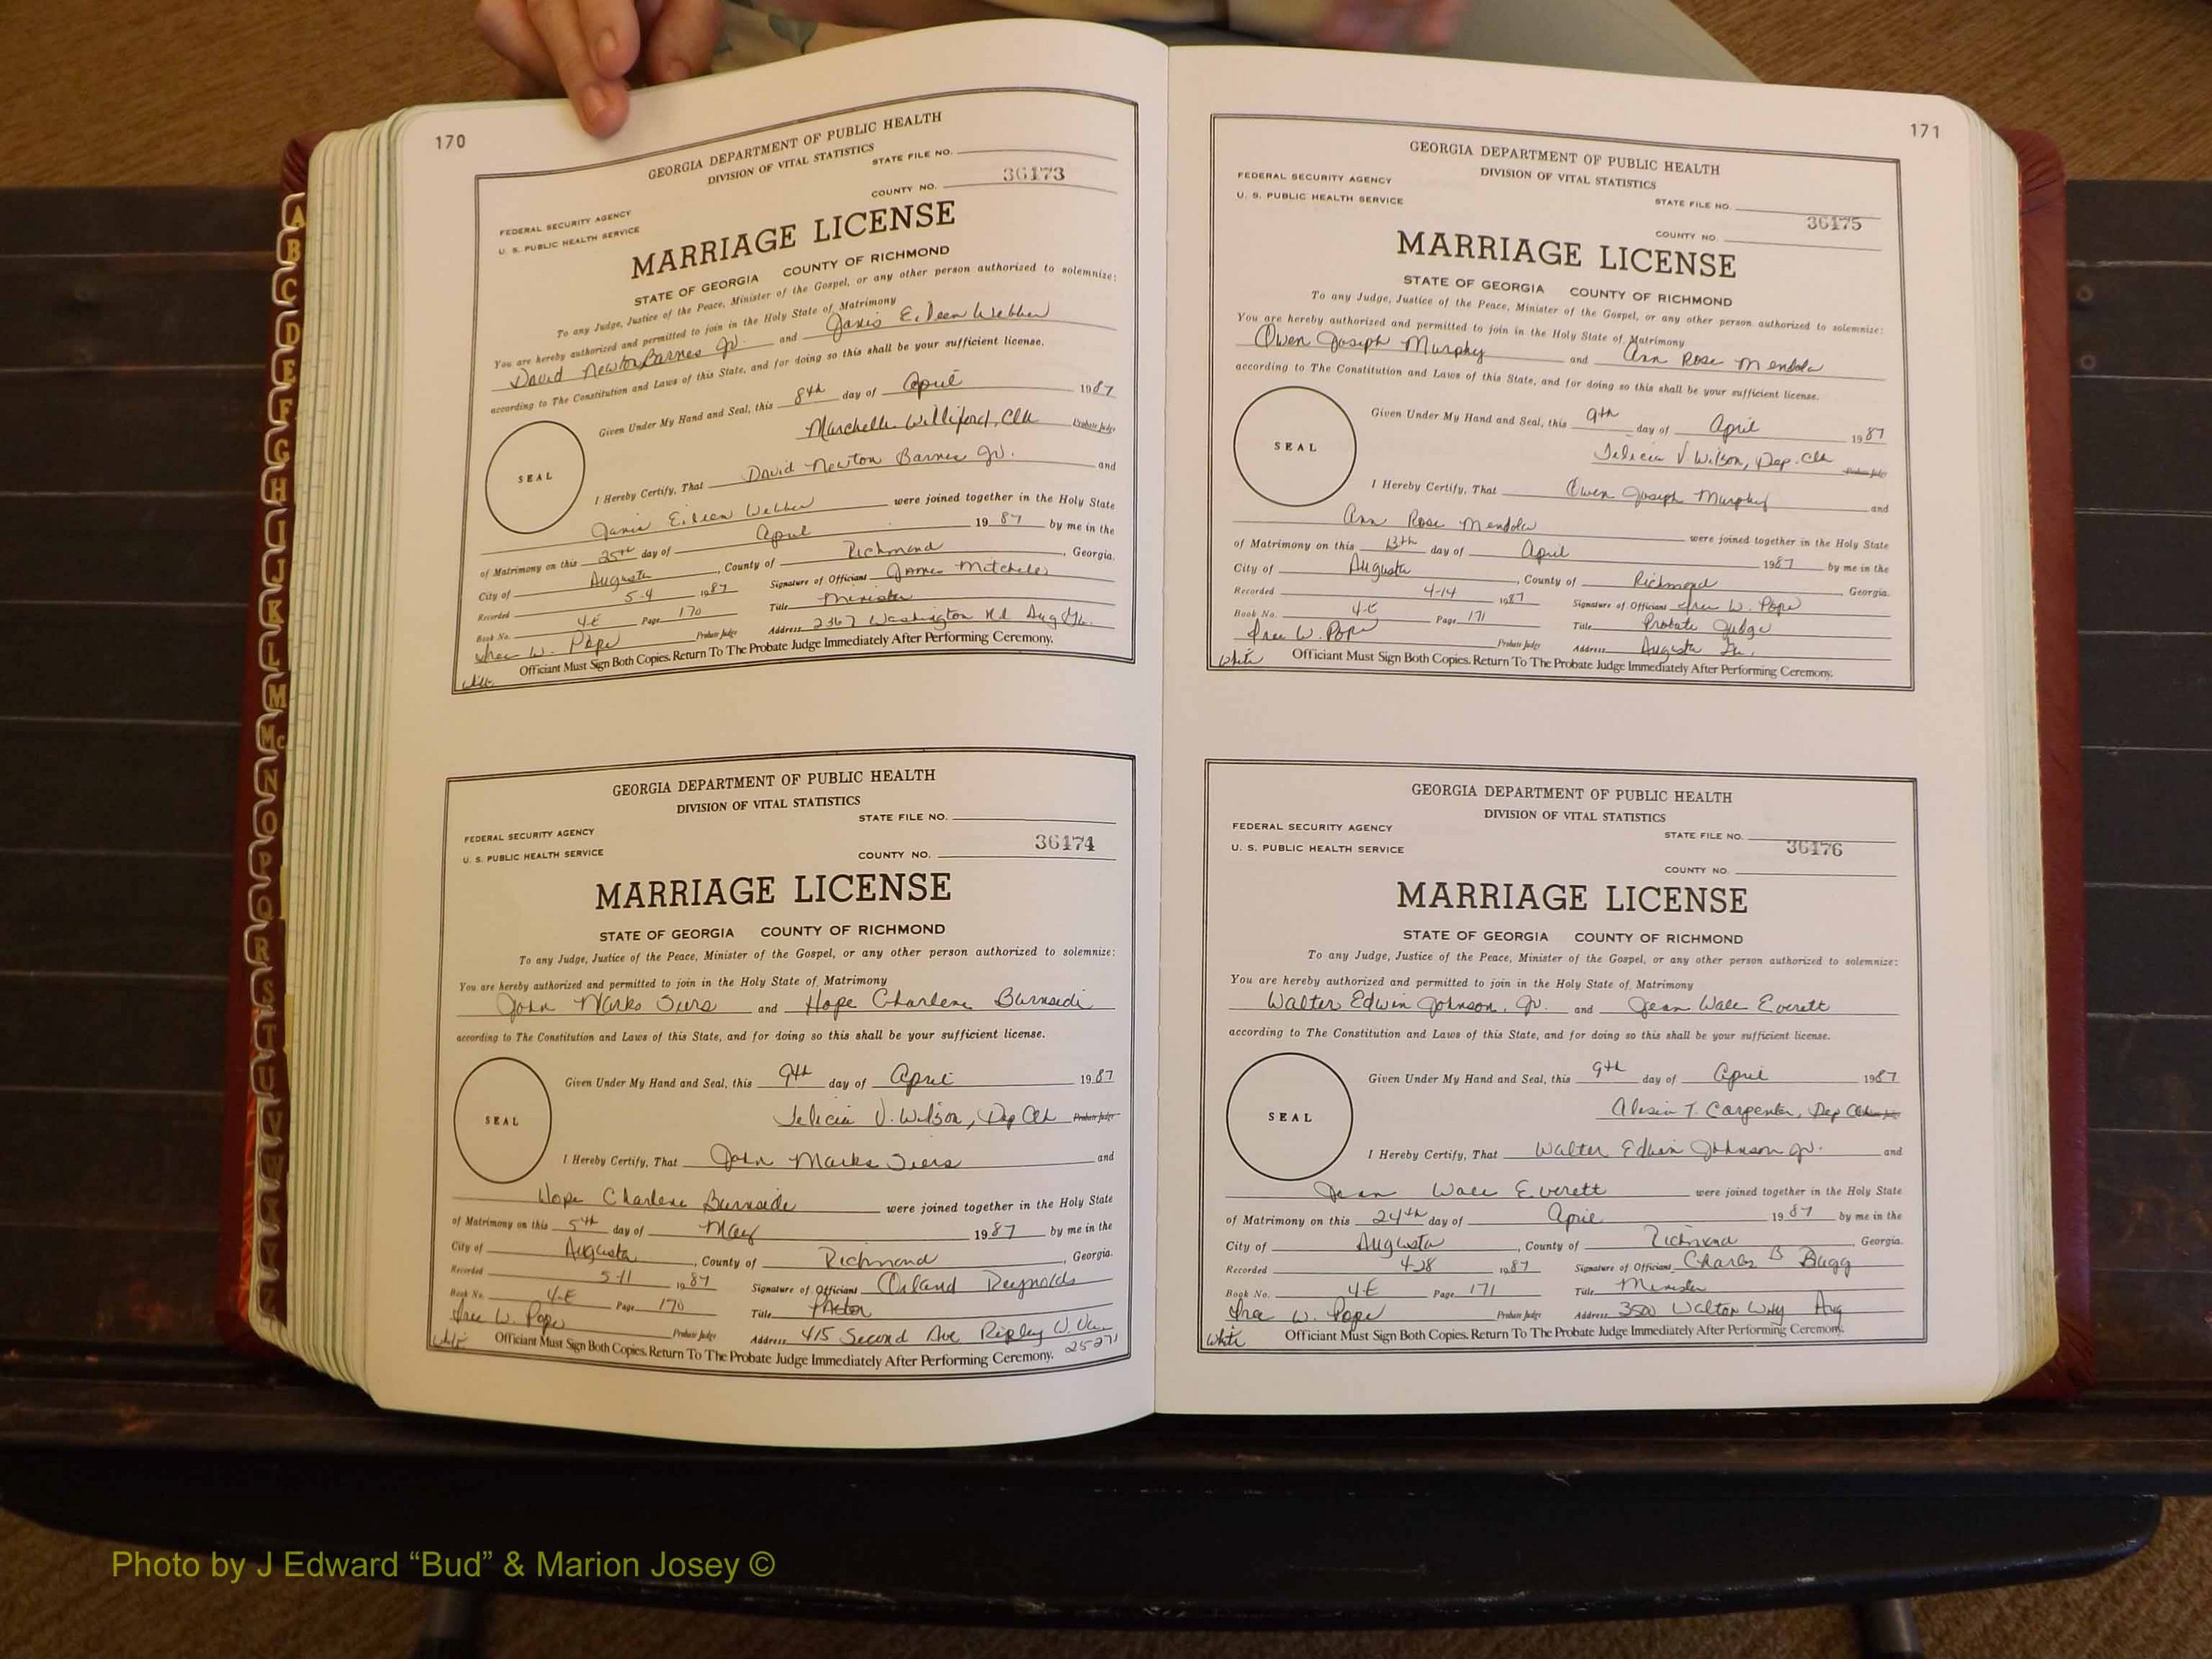 170
GEORGIA DEPARTMENT OF PUBLIC HEALTH
DIVISION OF VITAL STATISTICS
STATE FILE NO.
36173
COUNTY NO.
FEDERAL SECURITY AGENCY
U. S. PUBLIC HEALTH SERVICE
MARRIAGE LICENSE
STATE OF GEORGIA COUNTY OF RICHMOND
To any Judge, Justice of the Peace, Minister of the Gospel, or any other person authorized to solemnize:
You are hereby authorized and permitted to join in the Holy State of Matrimony
David Newton Barnes Jr. and Janis Eileen Webber
according to The Constitution and Laws of this State, and for doing so this shall be your sufficient license.
Given Under My Hand and Seal, this 8th day of April 1987
Marchelle Williford, Clk Probate Judge
SEAL
I Hereby Certify, That David Newton Barnes Jr. and
Janis Eileen Webber were joined together in the Holy State
of Matrimony on this 25th day of April 1987 by me in the
City of Augusta, County of Richmond, Georgia.
Recorded 5-4 1987 Signature of Officiant James Mitchell
Book No. 4-E Page 170 Title Minister
W. Pope Probate Judge Address 2367 Washington Rd Aug Ga.
Officiant Must Sign Both Copies. Return To The Probate Judge Immediately After Performing Ceremony.
GEORGIA DEPARTMENT OF PUBLIC HEALTH
DIVISION OF VITAL STATISTICS
STATE FILE NO.
FEDERAL SECURITY AGENCY
36174
U. S. PUBLIC HEALTH SERVICE
COUNTY NO.
MARRIAGE LICENSE
STATE OF GEORGIA COUNTY OF RICHMOND
To any Judge, Justice of the Peace, Minister of the Gospel, or any other person authorized to solemnize:
You are hereby authorized and permitted to join in the Holy State of Matrimony
John Marks and Hope Charlene Burnside
according to The Constitution and Laws of this State, and for doing so this shall be your sufficient license.
Given Under My Hand and Seal, this 9th day of April 1987
Felicia V. Wilson, Dep Clk Probate Judge
SEAL
I Hereby Certify, That John Marks and
Hope Charlene Burnside were joined together in the Holy State
of Matrimony on this 5th day of May 1987 by me in the
City of Augusta, County of Richmond, Georgia.
Recorded 5-11 1987 Signature of Officiant Orland Reynolds
Book No. 4-E Page 170 Title Pastor
W. Pope Probate Judge Address 415 Second Ave Ripley W. Va
25271
White Officiant Must Sign Both Copies. Return To The Probate Judge Immediately After Performing Ceremony.
171
GEORGIA DEPARTMENT OF PUBLIC HEALTH
DIVISION OF VITAL STATISTICS
FEDERAL SECURITY AGENCY
U. S. PUBLIC HEALTH SERVICE
STATE FILE NO.
36175
COUNTY NO.
MARRIAGE LICENSE
STATE OF GEORGIA COUNTY OF RICHMOND
To any Judge, Justice of the Peace, Minister of the Gospel, or any other person authorized to solemnize:
You are hereby authorized and permitted to join in the Holy State of Matrimony
Owen Joseph Murphy and Ann Rose Mendola
according to The Constitution and Laws of this State, and for doing so this shall be your sufficient license.
Given Under My Hand and Seal, this 9th day of April 1987
Felicia V. Wilson, Dep. Clk Probate Judge
SEAL
I Hereby Certify, That Owen Joseph Murphy and
Ann Rose Mendola were joined together in the Holy State
of Matrimony on this 13th day of April 1987 by me in the
City of Augusta, County of Richmond, Georgia.
Recorded 4-14 1987 Signature of Officiant W. Pope
Book No. 4-E Page 171 Title Probate Judge
W. Pope Probate Judge Address Augusta Ga.
White Officiant Must Sign Both Copies. Return To The Probate Judge Immediately After Performing Ceremony.
GEORGIA DEPARTMENT OF PUBLIC HEALTH
DIVISION OF VITAL STATISTICS
FEDERAL SECURITY AGENCY
STATE FILE NO.
U. S. PUBLIC HEALTH SERVICE
36176
COUNTY NO.
MARRIAGE LICENSE
STATE OF GEORGIA COUNTY OF RICHMOND
To any Judge, Justice of the Peace, Minister of the Gospel, or any other person authorized to solemnize:
You are hereby authorized and permitted to join in the Holy State of Matrimony
Walter Edwin Johnson, Jr. and Jean Wall Everett
according to The Constitution and Laws of this State, and for doing so this shall be your sufficient license.
Given Under My Hand and Seal, this 9th day of April 1987
T. Carpenter, Dep Clk
SEAL
I Hereby Certify, That Walter Edwin Johnson Jr. and
Jean Wall Everett were joined together in the Holy State
of Matrimony on this 24th day of April 1987 by me in the
City of Augusta, County of Richmond, Georgia.
Recorded 4-28 1987 Signature of Officiant Charles B Bugg
Book No. 4-E Page 171 Title Minister
W. Pope Probate Judge Address 3500 Walton Way Aug
White Officiant Must Sign Both Copies. Return To The Probate Judge Immediately After Performing Ceremony.
A
B
C
D
E
F
G
H
I
J
K
L
M
Mc
N
O
P
Q
R
S
T
U
V
W
Photo by J Edward “Bud” & Marion Josey ©